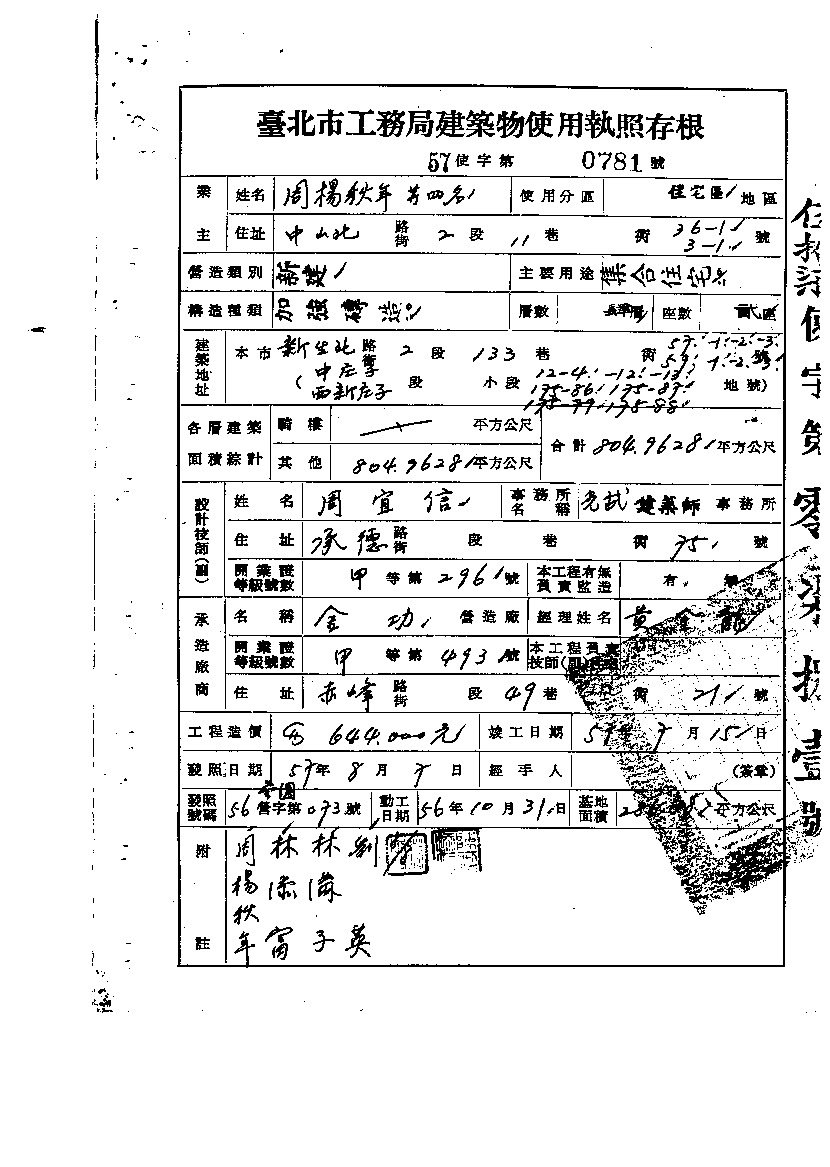 臺北市工務局建築物使用執照存根
57使字第 0781號
業主 姓名 周楊秋年等四名 使用分區 住宅區 地區
住址 中山北 路街 2 段 11 巷 街 36-1 3-1 號
營造類別 新建 主要用途 集合住宅
構造種類 加強磚造 層數 層 座數 貳座
建築地址 本市 新生北 路街 2 段 133 巷 街 57.-1.-2.-3. 59.-1.-2.-3. 號
(中庄子 西新庄子 段 小段 12-4.-12.-13. 175-86.175-87. 175-79.175-88. 地號)
各層建築面積綜計 騎樓 平方公尺 合計 804.9628 平方公尺
其他 804.9628 平方公尺
設計技師(副) 姓名 周宜信 事務所名稱 建築師 事務所
住址 承德 路街 段 巷 街 75 號
開業證等級號數 甲 等第 2961 號 本工程有無負責監造 有
承造廠商 名稱 金功 營造廠 經理姓名 黃金
開業證等級號數 甲 等第 493 號 本工程負責技師(副)
住址 赤峰 路街 段 49 巷 街 21 號
工程造價 644.000元 竣工日期 57年 7 月 15 日
發照日期 57年 8 月 7 日 經手人 (簽章)
發照號碼 56營字第073號 動工日期 56年10月31日 基地面積 平方公尺
附註 周楊秋年 林添富 林溝子 劉英
使字第零柒捌壹號